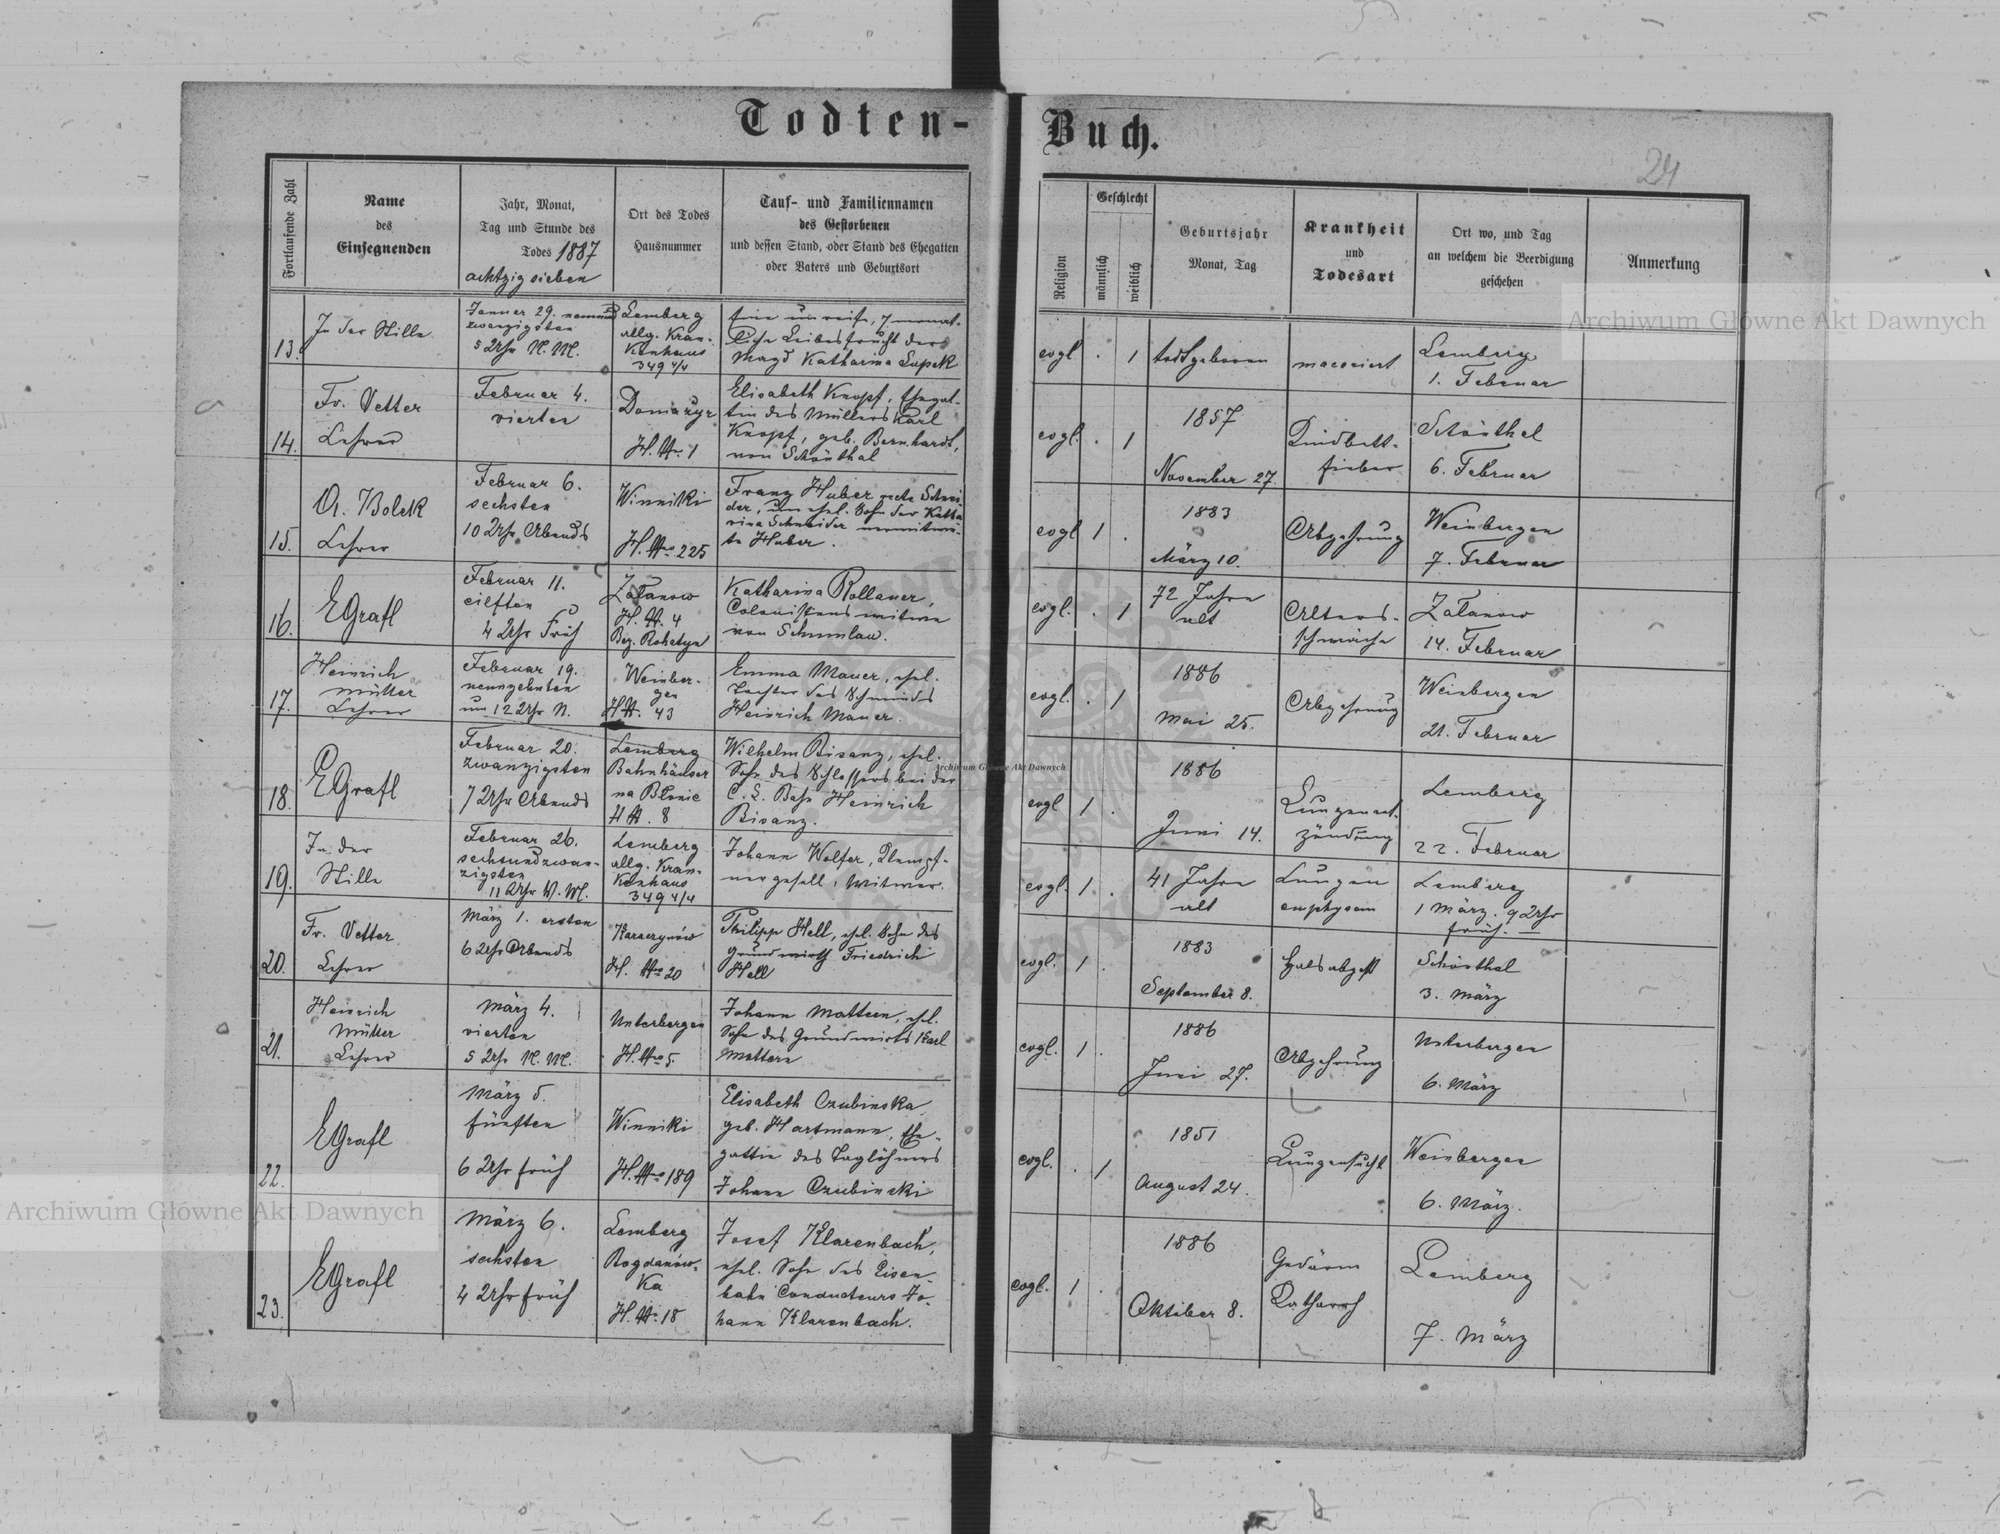 Todten-
Buch.
24
Fortlaufende Zahl
Name
des
Einsegnenden
Jahr, Monat,
Tag und Stunde des
Todes 1887
achtzig sieben
Ort des Todes
Hausnummer
Tauf- und Familiennamen
des Gestorbenen
und dessen Stand, oder Stand des Ehegatten
oder Vaters und Geburtsort
Religion
Geschlecht
männlich
weiblich
Geburtsjahr
Monat, Tag
Krankheit
und
Todesart
Ort wo, und Tag
an welchem die Beerdigung
geschehen
Anmerkung
13.
In der Stille
Januar 29.
zwanzigsten
5 Uhr N. M.
Lemberg
allg. Kran-
kenhaus
349 4/4
Eine unreife, 7 monat-
liche Leibesfrucht der
Magd Katharina Lupek
evgl . 1
todtgeboren
maceriert
Lemberg
1. Februar
14.
Fr. Vetter
Lehrer
Februar 4.
vierten
Domazyr
H. No 1
Elisabeth Knopf, Ehegat-
tin des Müllers Karl
Knopf, geb. Bernhardt,
von Schönthal
evgl. . 1
1857
November 27.
Kindbett-
fieber
Schönthal
6. Februar
15.
A. Bolek
Lehrer
Februar 6.
sechsten
10 Uhr Abends
Winniki
H. No 225
Franz Huber recte Schnei
der, un ehel. Sohn der Katha
rina Schneider verwitwe-
te Huber.
evgl 1 .
1883
März 10.
Abzehrung
Weinbergen
7. Februar
16.
EGrafl
Februar 11.
eilften
4 Uhr Früh
Zalanow
H. N. 4
Bez. Rohatyn
Katharina Rollauer,
Colonistenswitwe
von Schumlau.
evgl. . 1
72 Jahre
alt
Alters-
schwäche
Zalanow
14. Februar
17.
Heinrich
Müller
Lehrer
Februar 19.
neunzehnten
um 12 Uhr N.
Weinber-
gen
H N. 43
Emma Mauer, ehel.
Tochter des Schmieds
Heinrich Mauer.
evgl. . 1
1886
Mai 25.
Abzehrung
Weinbergen
21. Februar
18.
EGrafl
Februar 20.
zwanzigsten
7 Uhr Abends
Lemberg
Bahnhäuser
na Błonie
H N. 8
Wilhelm Bisanz, ehel.
Sohn des Schlossers bei der
C. L. Bahn Heinrich
Bisanz.
evgl 1 .
1886
Juni 14.
Lungenent-
zündung
Lemberg
22. Februar
19.
In der
Stille
Februar 26.
sechsundzwan-
zigsten
11 Uhr V. M.
Lemberg
allg. Kran-
kenhaus
349 4/4
Johann Wolfer, Klempf-
nergesell, Witwer.
evgl. 1 .
41 Jahre
alt
Lungen
emphysem
Lemberg
1 März. 9 Uhr
früh.
20.
Fr. Vetter
Lehrer
März 1. ersten
6 Uhr Abends
Karaczynów
H. No 20
Philipp Hell, ehel. Sohn des
Grundwirth Friedrich
Hell
evgl. 1 .
1883
September 8.
Schönthal
3. März
21.
Heinrich
Müller
Lehrer
März 4.
vierten
5 Uhr N. M.
Unterbergen
H. No 5.
Johann Mattern, ehel.
Sohn des Grundwirts Karl
Mattern
evgl. 1 .
1886
Juni 27.
Abzehrung
Unterbergen
6. März
22.
EGrafl
März 5.
fünften
6 Uhr früh
Winniki
H. No 189
Elisabeth Czubinska
geb. Hartmann, Ehe-
gattin des Taglöhners
Johann Czubinski
evgl. . 1
1851
August 24.
Lungensucht
Weinbergen
6. März.
23.
EGrafl
März 6.
sechsten
4 Uhr früh
Lemberg
Bogdanów-
ka
H. No 18
Josef Klarenbach,
ehel. Sohn des Eisen-
bahn Conducteurs Jo-
hann Klarenbach.
evgl. 1 .
1886
Oktober 8.
Gedärm
Katharrh
Lemberg
7. März
Archiwum Główne Akt Dawnych
Archiwum Główne Akt Dawnych
Archiwum Główne Akt Dawnych